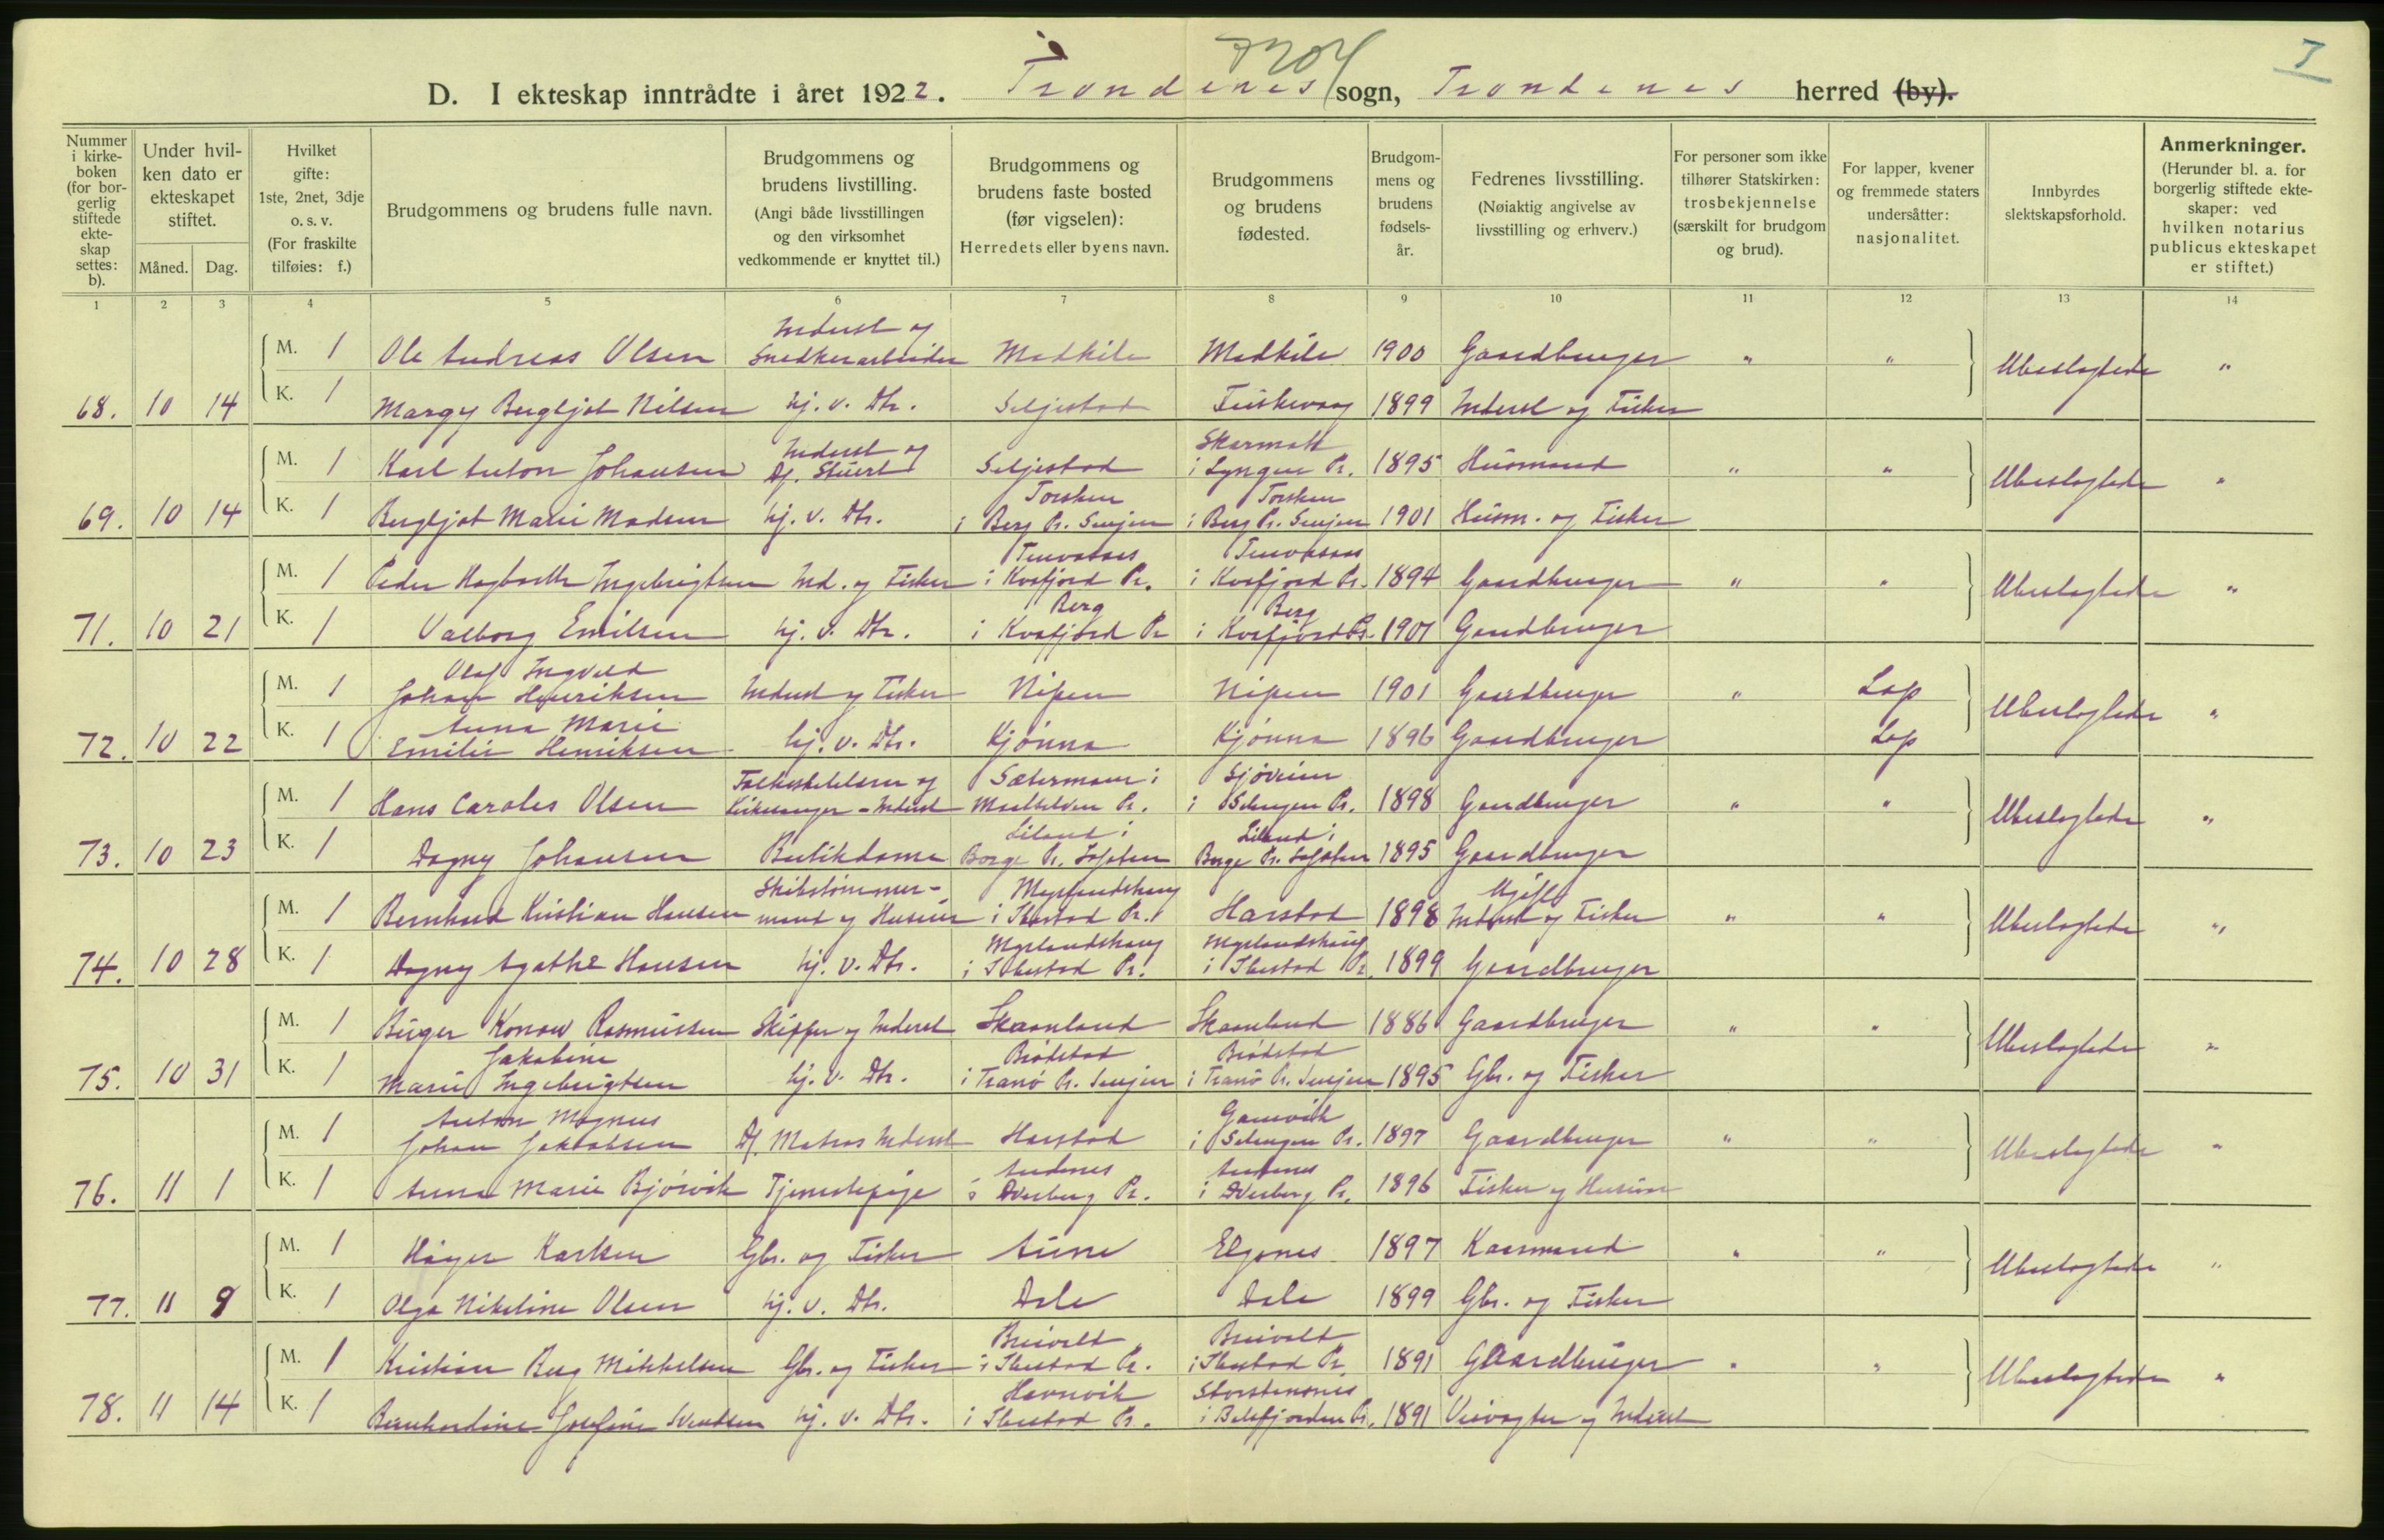 7204
I
D. I ekteskap inntrådte i året 1922. Trondenes sogn, Trondenes herred (by).
Nummer i kirkeboken (for borgerlig stiftede ekteskap settes: b).
Under hvilken dato er ekteskapet stiftet.
Måned. Dag.
Hvilket gifte: 1ste, 2net, 3dje o. s. v. (For fraskilte tilføies: f.)
Brudgommens og brudens fulle navn.
Brudgommens og brudens livstilling. (Angi både livsstillingen og den virksomhet vedkommende er knyttet til.)
Brudgommens og brudens faste bosted (før vigselen): Herredets eller byens navn.
Brudgommens og brudens fødested.
Brudgommens og brudens fødselsår.
Fedrenes livsstilling. (Nøiaktig angivelse av livsstilling og erhverv.)
For personer som ikke tilhører Statskirken: trosbekjennelse (særskilt for brudgom og brud).
For lapper, kvener og fremmede staters undersåtter: nasjonalitet.
Innbyrdes slektskapsforhold.
Anmerkninger. (Herunder bl. a. for borgerlig stiftede ekteskaper: ved hvilken notarius publicus ekteskapet er stiftet.)
1 2 3 4 5 6 7 8 9 10 11 12 13 14
M. 1 Ole Andreas Olsen Inderst og Snedkerarbeider Madkile Madkile 1900 Gaardbruger " " Ubeslegtede "
68. 10 14 K. 1 Margy Bergljot Nilsen hj. v. Dtr. Seljestad 1899 Inderst og Fisker
M. 1 Karl Anton Johansen Inderst og Df. Stuert Seljestad i Lyngen Pr. 1895 Husmand " " Ubeslegtede "
69. 10 14 K. 1 Bergljot Marie Madsen hj. v. Dtr. Torsken i Berg Pr. Senjen Torsken i Berg Pr. Senjen 1901 Husm. og Fisker
M. 1 Peder Hagbarth Ingebrigtsen Ind. og Fisker i Kvæfjord Pr. i Kvæfjord Pr. 1894 Gaardbruger " " Ubeslegtede "
71. 10 21 K. 1 Valborg Emilsen hj. v. Dtr. Berg i Kvæfjord Pr Berg i Kvæfjord Pr. 1901 Gaardbruger
M. 1 Olaf Ingvald Johan Henriksen Inderst og Fisker Nipen Nipen 1901 Gaardbruger " Lap Ubeslegtede "
72. 10 22 K. 1 Anna Marie Emilie Henriksen hj. v. Dtr. Kjønna Kjønna 1896 Gaardbruger Lap
M. 1 Hans Carolus Olsen Kirkesanger - Inderst Sætermoen i Maalselven Pr. Sjøveien i Salangen Pr. 1898 Gaardbruger " " Ubeslegtede "
73. 10 23 K. 1 Dagny Johansen Butikdame Liland i Borge Pr. Lofoten Liland i Borge Pr. Lofoten 1895 Gaardbruger
M. 1 Bernhard Kristian Hansen Skibstømmermand og Huseier Myrlandshaug i Ibestad Pr. Harstad 1898 Ugift Inderst og Fisker " " Ubeslegtede "
74. 10 28 K. 1 Dagny Agathe Hansen hj. v. Dtr. Myrlandshaug i Ibestad Pr. Myrlandshaug i Ibestad Pr. 1899 Gaardbruger
M. 1 Birger Konow Rasmussen Skipper og Inderst Skaanland Skaanland 1886 Gaardbruger " " Ubeslegtede "
75. 10 31 K. 1 Jakobine Marie Ingebrigtsen hj. v. Dtr. Brødstad i Tranø Pr. Senjen Brødstad i Tranø Pr. Senjen 1895 Gbr. og Fisker
M. 1 Anton Magnus Johan Jakobsen Df. Matros Inderst Harstad i Salangen Pr. 1897 Gaardbruger " " Ubeslegtede "
76. 11 1 K. 1 Anna Marie Bjørvik Tjenestepige Andenes i Dverberg Pr. Andenes i Dverberg Pr. 1896 Fisker og Huseier
M. 1 Håger Karlsen Gbr. og Fisker Aune Elgenes 1897 Kaarmand " " Ubeslegtede "
77. 11 9 K. 1 Olga Nikoline Olsen hj. v. Dtr. Dale Dale 1899 Gbr. og Fisker
M. 1 Kristian Berg Mikkelsen Gbr. og Fisker Breivold i Ibestad Pr. Breivold i Ibestad Pr. 1891 Gaardbruger " " Ubeslegtede "
78. 11 14 K. 1 Bernhardine Josefine Svendsen hj. v. Dtr. Havnvik i Ibestad Pr. Storstennes i Balsfjorden Pr. 1891 Veivogter og Inderst